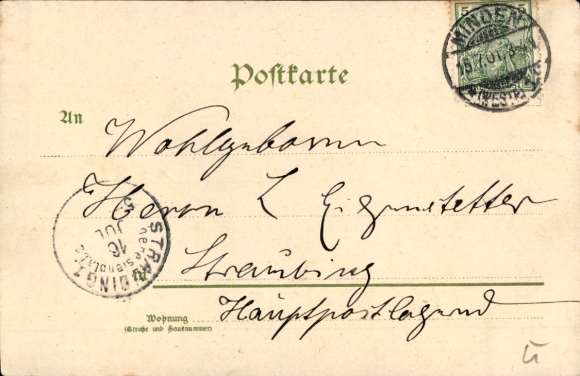 5
MINDEN
15.7.01.
*(WESTF)
Postkarte
An
Wohlgeboren
Herrn L Eigenstetter
STRAUBING
16
JUL
Straubing
Hauptpostlagernd
Wohnung
(Straße und Hausnummer)